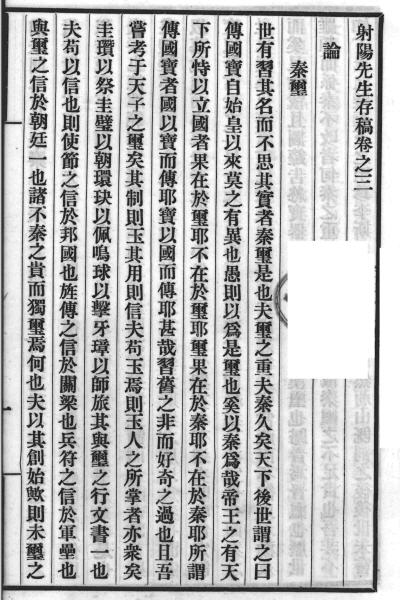 射陽先生存稿卷之三
論
秦璽
世有習其名而不思其實者秦璽是也夫璽之重夫秦久矣天下後世謂之曰
傳國寶自始皇以來莫之有異也愚則以爲是璽也奚以秦爲哉帝王之有天
下所恃以立國者果在於璽耶不在於璽耶璽果在於秦耶不在於秦耶所謂
傳國寶者國以寶而傳耶寶以國而傳耶甚哉習舊之非而好奇之過也且吾
嘗考于天子之璽矣其制則玉其用則信夫苟玉焉則玉人之所掌者亦衆矣
圭瓚以祭圭璧以朝環玦以佩鳴球以擊牙璋以師旅其與璽之行文書一也
夫苟以信也則使節之信於邦國也旌傳之信於關梁也兵符之信於軍壘也
與璽之信於朝廷一也諸不秦之貴而獨璽焉何也夫以其創始歟則未璽之
一